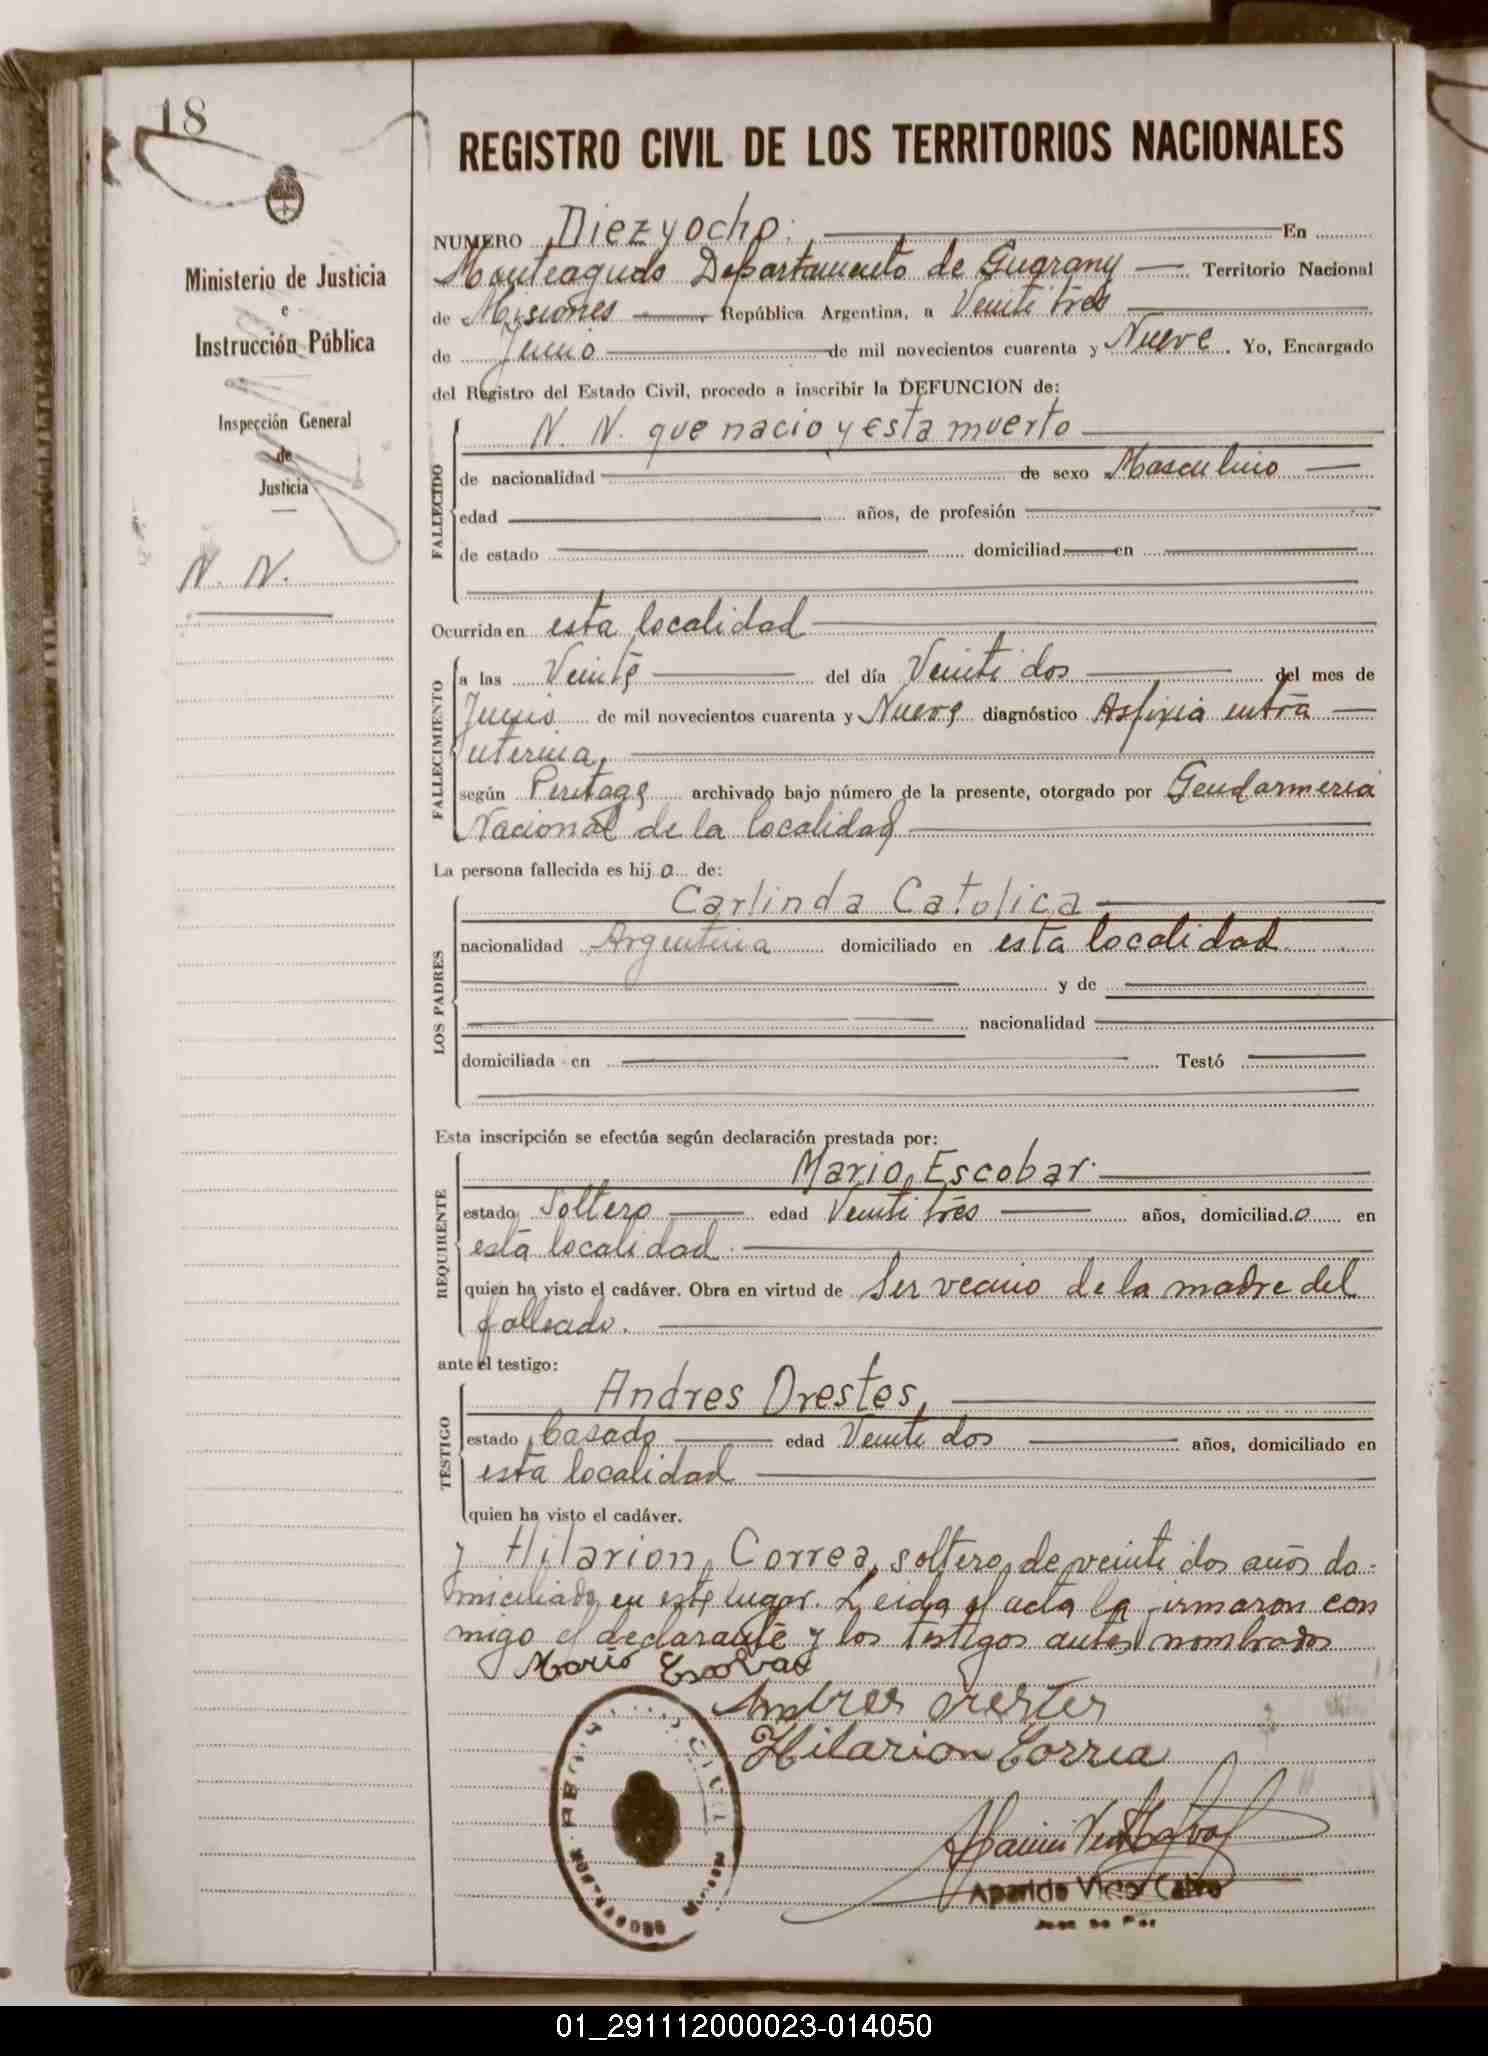 18
Ministerio de Justicia
e
Instrucción Pública
Inspección General
de
Justicia
N. N.
REGISTRO CIVIL DE LOS TERRITORIOS NACIONALES
NUMERO Diez y ocho. En
Monteagudo Departamento de Guarany Territorio Nacional
de Misiones República Argentina, a Veinti trés
de Junio de mil novecientos cuarenta y Nueve. Yo, Encargado
del Registro del Estado Civil, procedo a inscribir la DEFUNCION de:
FALLECIDO
N. N. que nacio y esta muerto
de nacionalidad de sexo Masculino
edad años, de profesión
de estado domiciliad en
Ocurrida en esta localidad
FALLECIMIENTO
a las Veinte del día Veinti dos del mes de
Junio de mil novecientos cuarenta y Nueve diagnóstico Asfixia intra
uterina,
según Peritage archivado bajo número de la presente, otorgado por Gendarmeria
Nacional de la localidad
La persona fallecida es hij o de:
LOS PADRES
Carlinda Catolica
nacionalidad Argentina domiciliado en esta localidad
y de
nacionalidad
domiciliada en Testó
Esta inscripción se efectúa según declaración prestada por:
REQUIRENTE
Mario Escobar
estado Soltero edad Veinti trés años, domiciliad o en
esta localidad.
quien ha visto el cadáver. Obra en virtud de Ser vecino de la madre del
fallecido.
ante el testigo:
TESTIGO
Andres Orestes,
estado Casado edad Veinti dos años, domiciliado en
esta localidad
quien ha visto el cadáver.
y Hilarion Correa, soltero, de veinti dos años do-
miciliado en este lugar. Leida el acta la firmaron con
migo el declarante y los testigos antes nombrados
Mario Escovar
Andres Orestes
Hilarion Correa
Aparicio Calvo
Juez de Paz
01_291112000023-014050